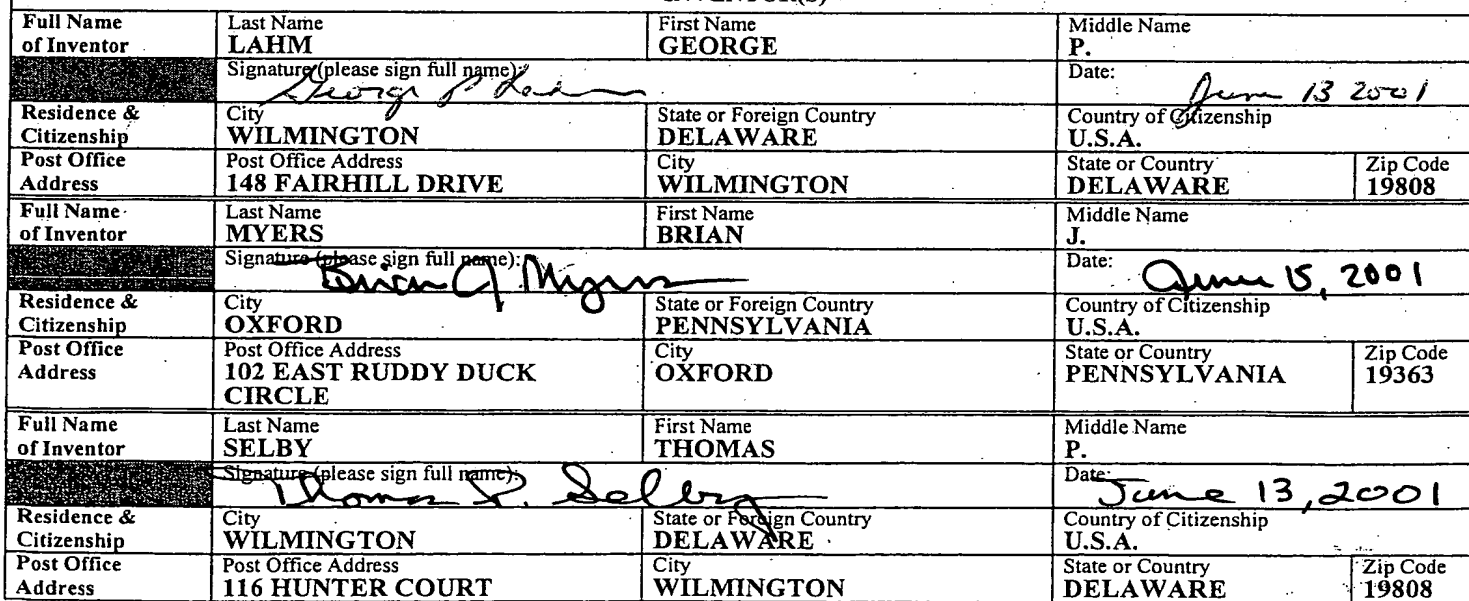 Full Name of Inventor Last Name LAHM First Name GEORGE Middle Name P.
Signature (please sign full name): George P Lahm Date: June 13 2001
Residence & Citizenship City WILMINGTON State or Foreign Country DELAWARE Country of Citizenship U.S.A.
Post Office Address Post Office Address 148 FAIRHILL DRIVE City WILMINGTON State or Country DELAWARE Zip Code 19808
Full Name of Inventor Last Name MYERS First Name BRIAN Middle Name J.
Signature (please sign full name): Brian J Myers Date: June 15, 2001
Residence & Citizenship City OXFORD State or Foreign Country PENNSYLVANIA Country of Citizenship U.S.A.
Post Office Address Post Office Address 102 EAST RUDDY DUCK CIRCLE City OXFORD State or Country PENNSYLVANIA Zip Code 19363
Full Name of Inventor Last Name SELBY First Name THOMAS Middle Name P.
Signature (please sign full name): Thomas P. Selby Date: June 13, 2001
Residence & Citizenship City WILMINGTON State or Foreign Country DELAWARE Country of Citizenship U.S.A.
Post Office Address Post Office Address 116 HUNTER COURT City WILMINGTON State or Country DELAWARE Zip Code 19808